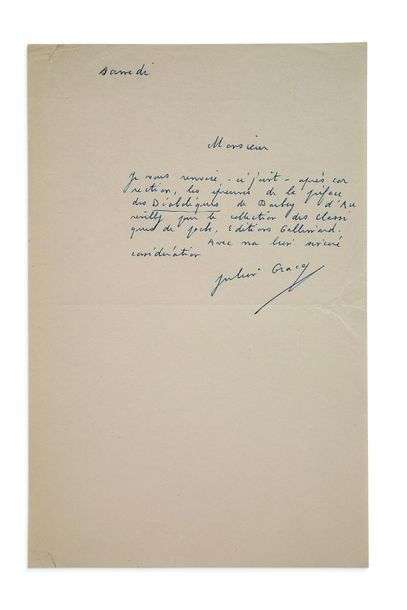 Samedi
Monsieur
Je vous renvoie - ci-joint - après cor
rection, les épreuves de la préface
des Diaboliques de Barbey d'Au
revilly pour la collection des classi
ques de poche, Editions Gallimard.
Avec ma bien sincère
considération
Julien Gracq